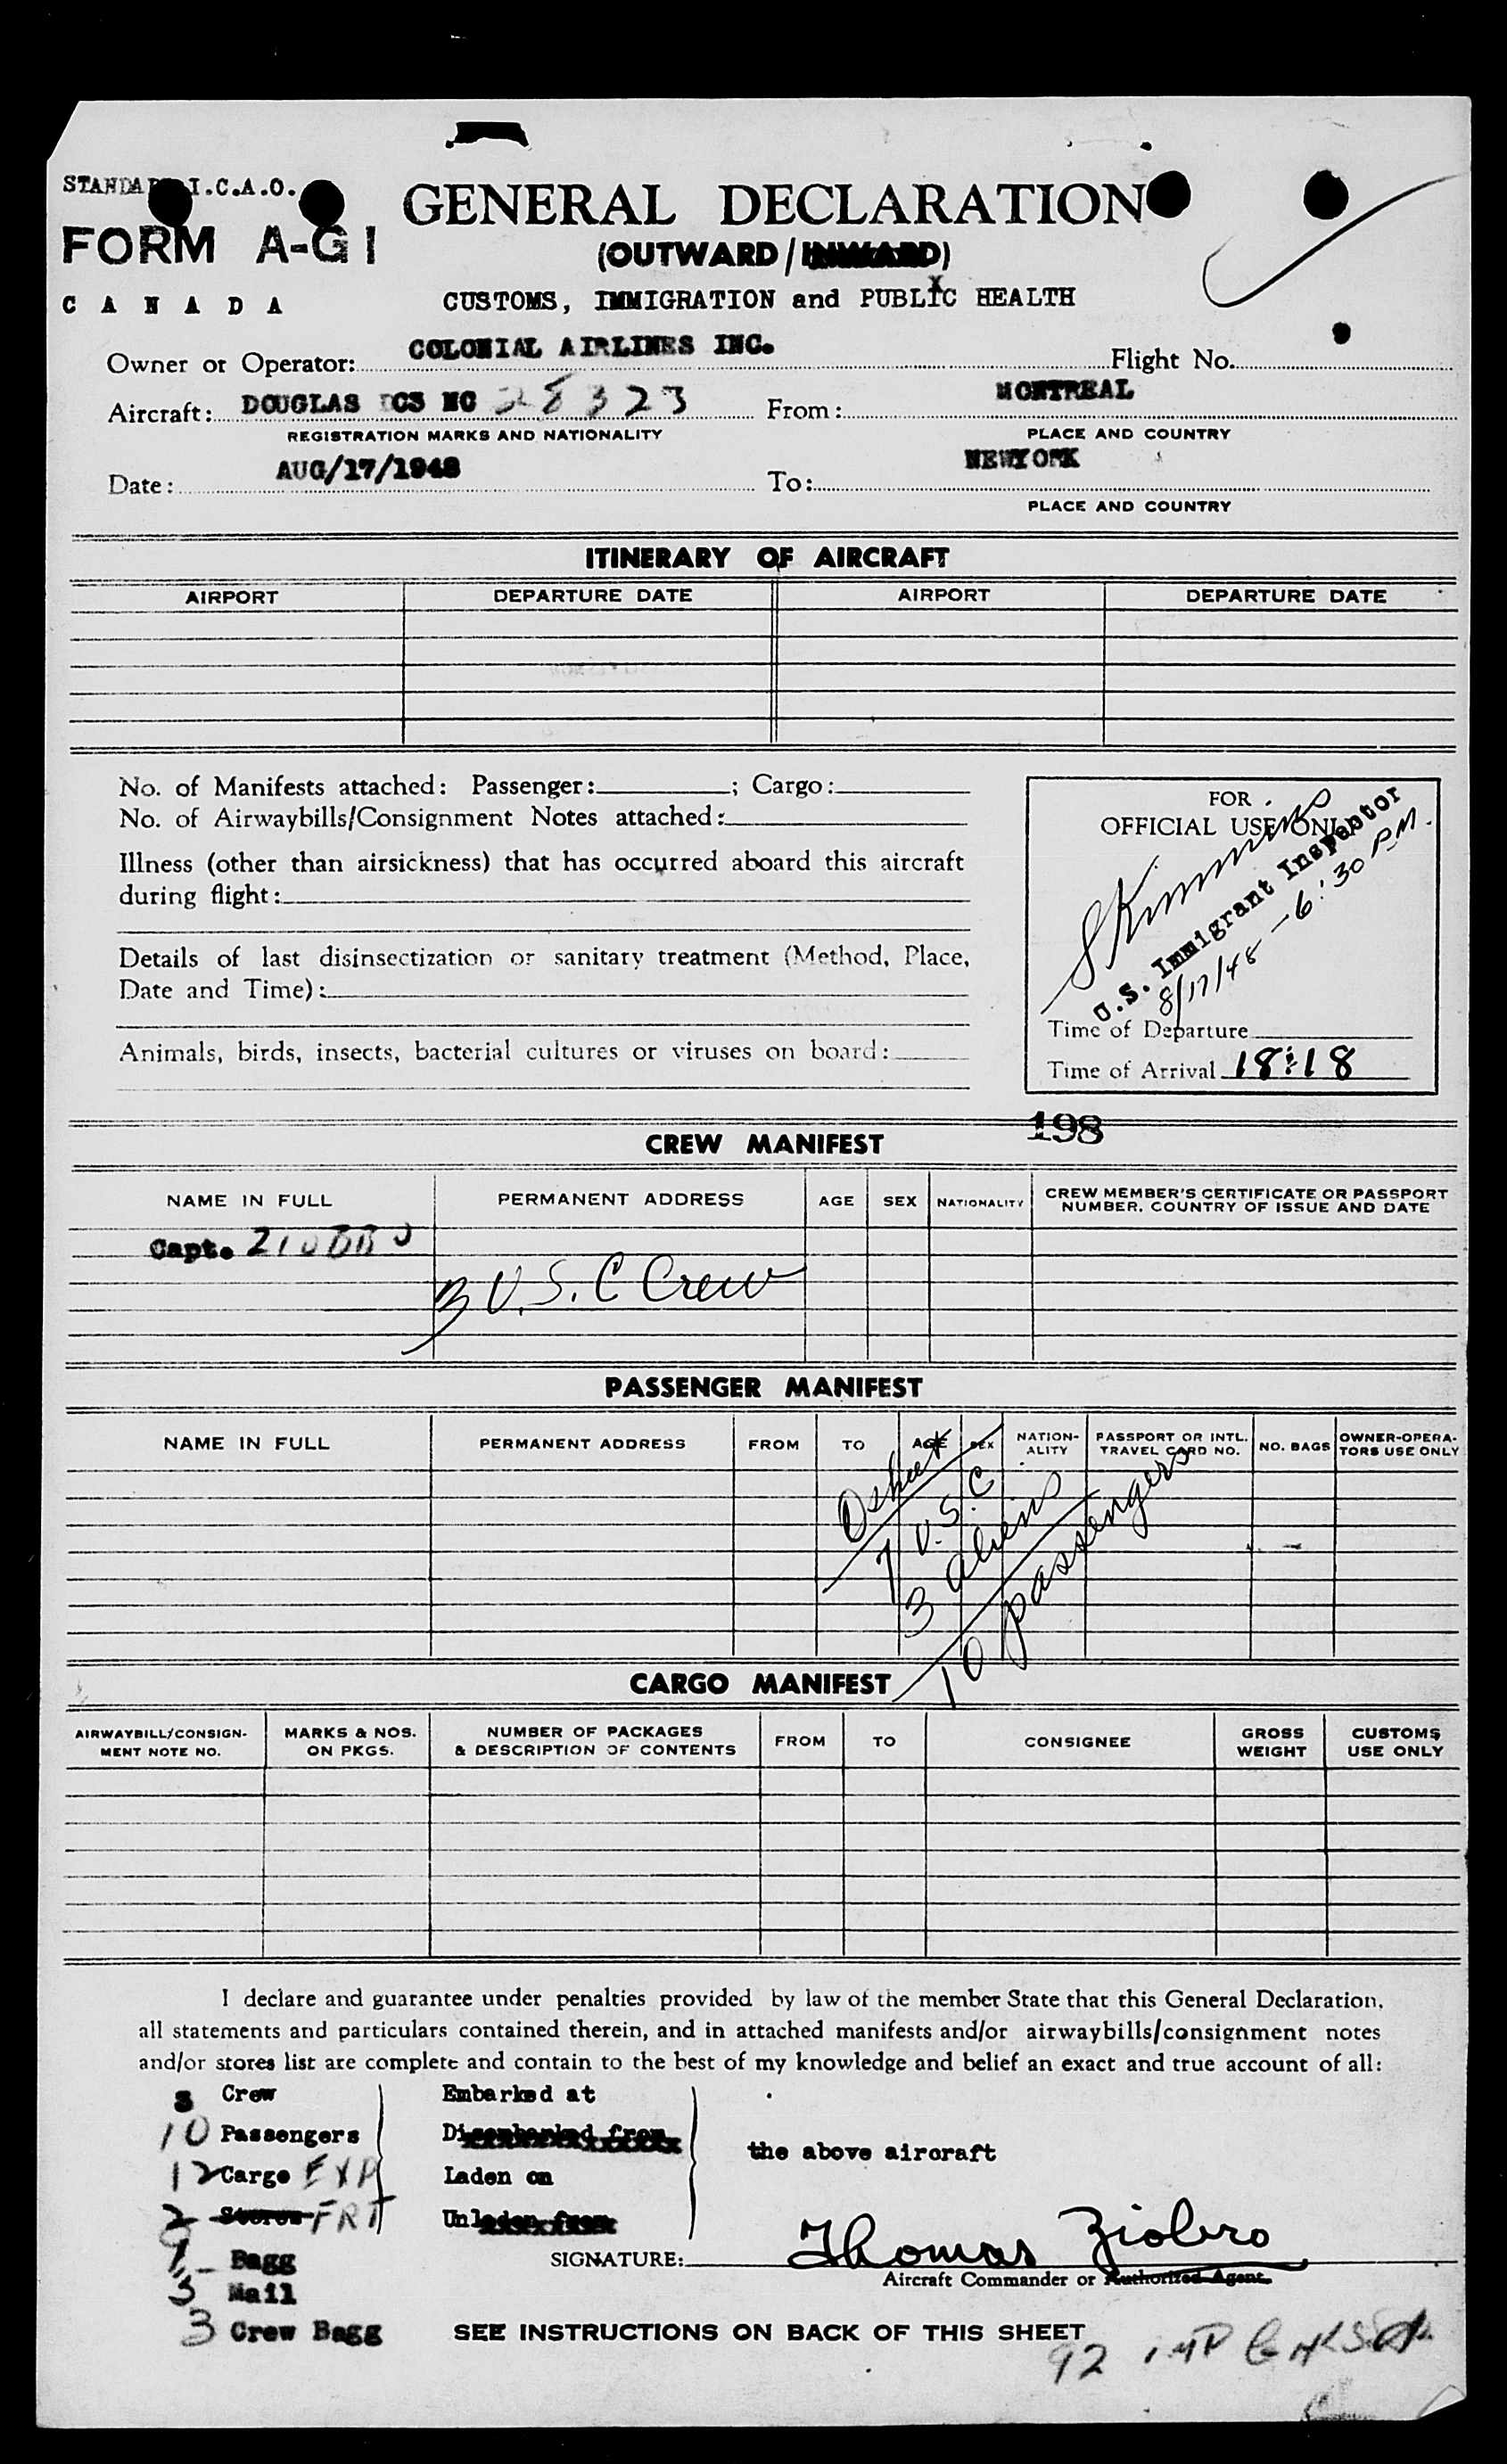 STANDARD I.C.A.O.
FORM A-G1
CANADA
GENERAL DECLARATION
(OUTWARD/INWARD)
CUSTOMS, IMMIGRATION and PUBLIC HEALTH
Owner or Operator: COLONIAL AIRLINES INC. Flight No.
Aircraft: DOUGLAS DC3 NC 28323 From: MONTREAL
REGISTRATION MARKS AND NATIONALITY PLACE AND COUNTRY
Date: AUG/17/1948 To: NEWYORK
PLACE AND COUNTRY
ITINERARY OF AIRCRAFT
AIRPORT DEPARTURE DATE AIRPORT DEPARTURE DATE
No. of Manifests attached: Passenger: ; Cargo:
No. of Airwaybills/Consignment Notes attached:
Illness (other than airsickness) that has occurred aboard this aircraft
during flight:
Details of last disinsectization or sanitary treatment (Method, Place,
Date and Time):
Animals, birds, insects, bacterial cultures or viruses on board:
FOR
OFFICIAL USE ONLY
U.S. Immigrant Inspector
8/17/48 - 6:30 PM.
Time of Departure
Time of Arrival 18:18
198
CREW MANIFEST
NAME IN FULL PERMANENT ADDRESS AGE SEX NATIONALITY CREW MEMBER'S CERTIFICATE OR PASSPORT
NUMBER, COUNTRY OF ISSUE AND DATE
Capt. ZIOBRO
3 U.S.C Crew
PASSENGER MANIFEST
NAME IN FULL PERMANENT ADDRESS FROM TO AGE SEX NATION-
ALITY PASSPORT OR INTL.
TRAVEL CARD NO. NO. BAGS OWNER-OPERA-
TORS USE ONLY
7 U.S.C
3 aliens
10 passengers
CARGO MANIFEST
AIRWAYBILL/CONSIGN-
MENT NOTE NO. MARKS & NOS.
ON PKGS. NUMBER OF PACKAGES
& DESCRIPTION OF CONTENTS FROM TO CONSIGNEE GROSS
WEIGHT CUSTOMS
USE ONLY
I declare and guarantee under penalties provided by law of the member State that this General Declaration,
all statements and particulars contained therein, and in attached manifests and/or airwaybills/consignment notes
and/or stores list are complete and contain to the best of my knowledge and belief an exact and true account of all:
3 Crew Embarked at
10 Passengers Disembarked from
the above aircraft
12 Cargo EXP Laden on
2 Stores FRT Unladen from
Bagg
3 Mail
3 Crew Bagg
SIGNATURE: Thomas Ziobro
Aircraft Commander or Authorized Agent.
SEE INSTRUCTIONS ON BACK OF THIS SHEET
92